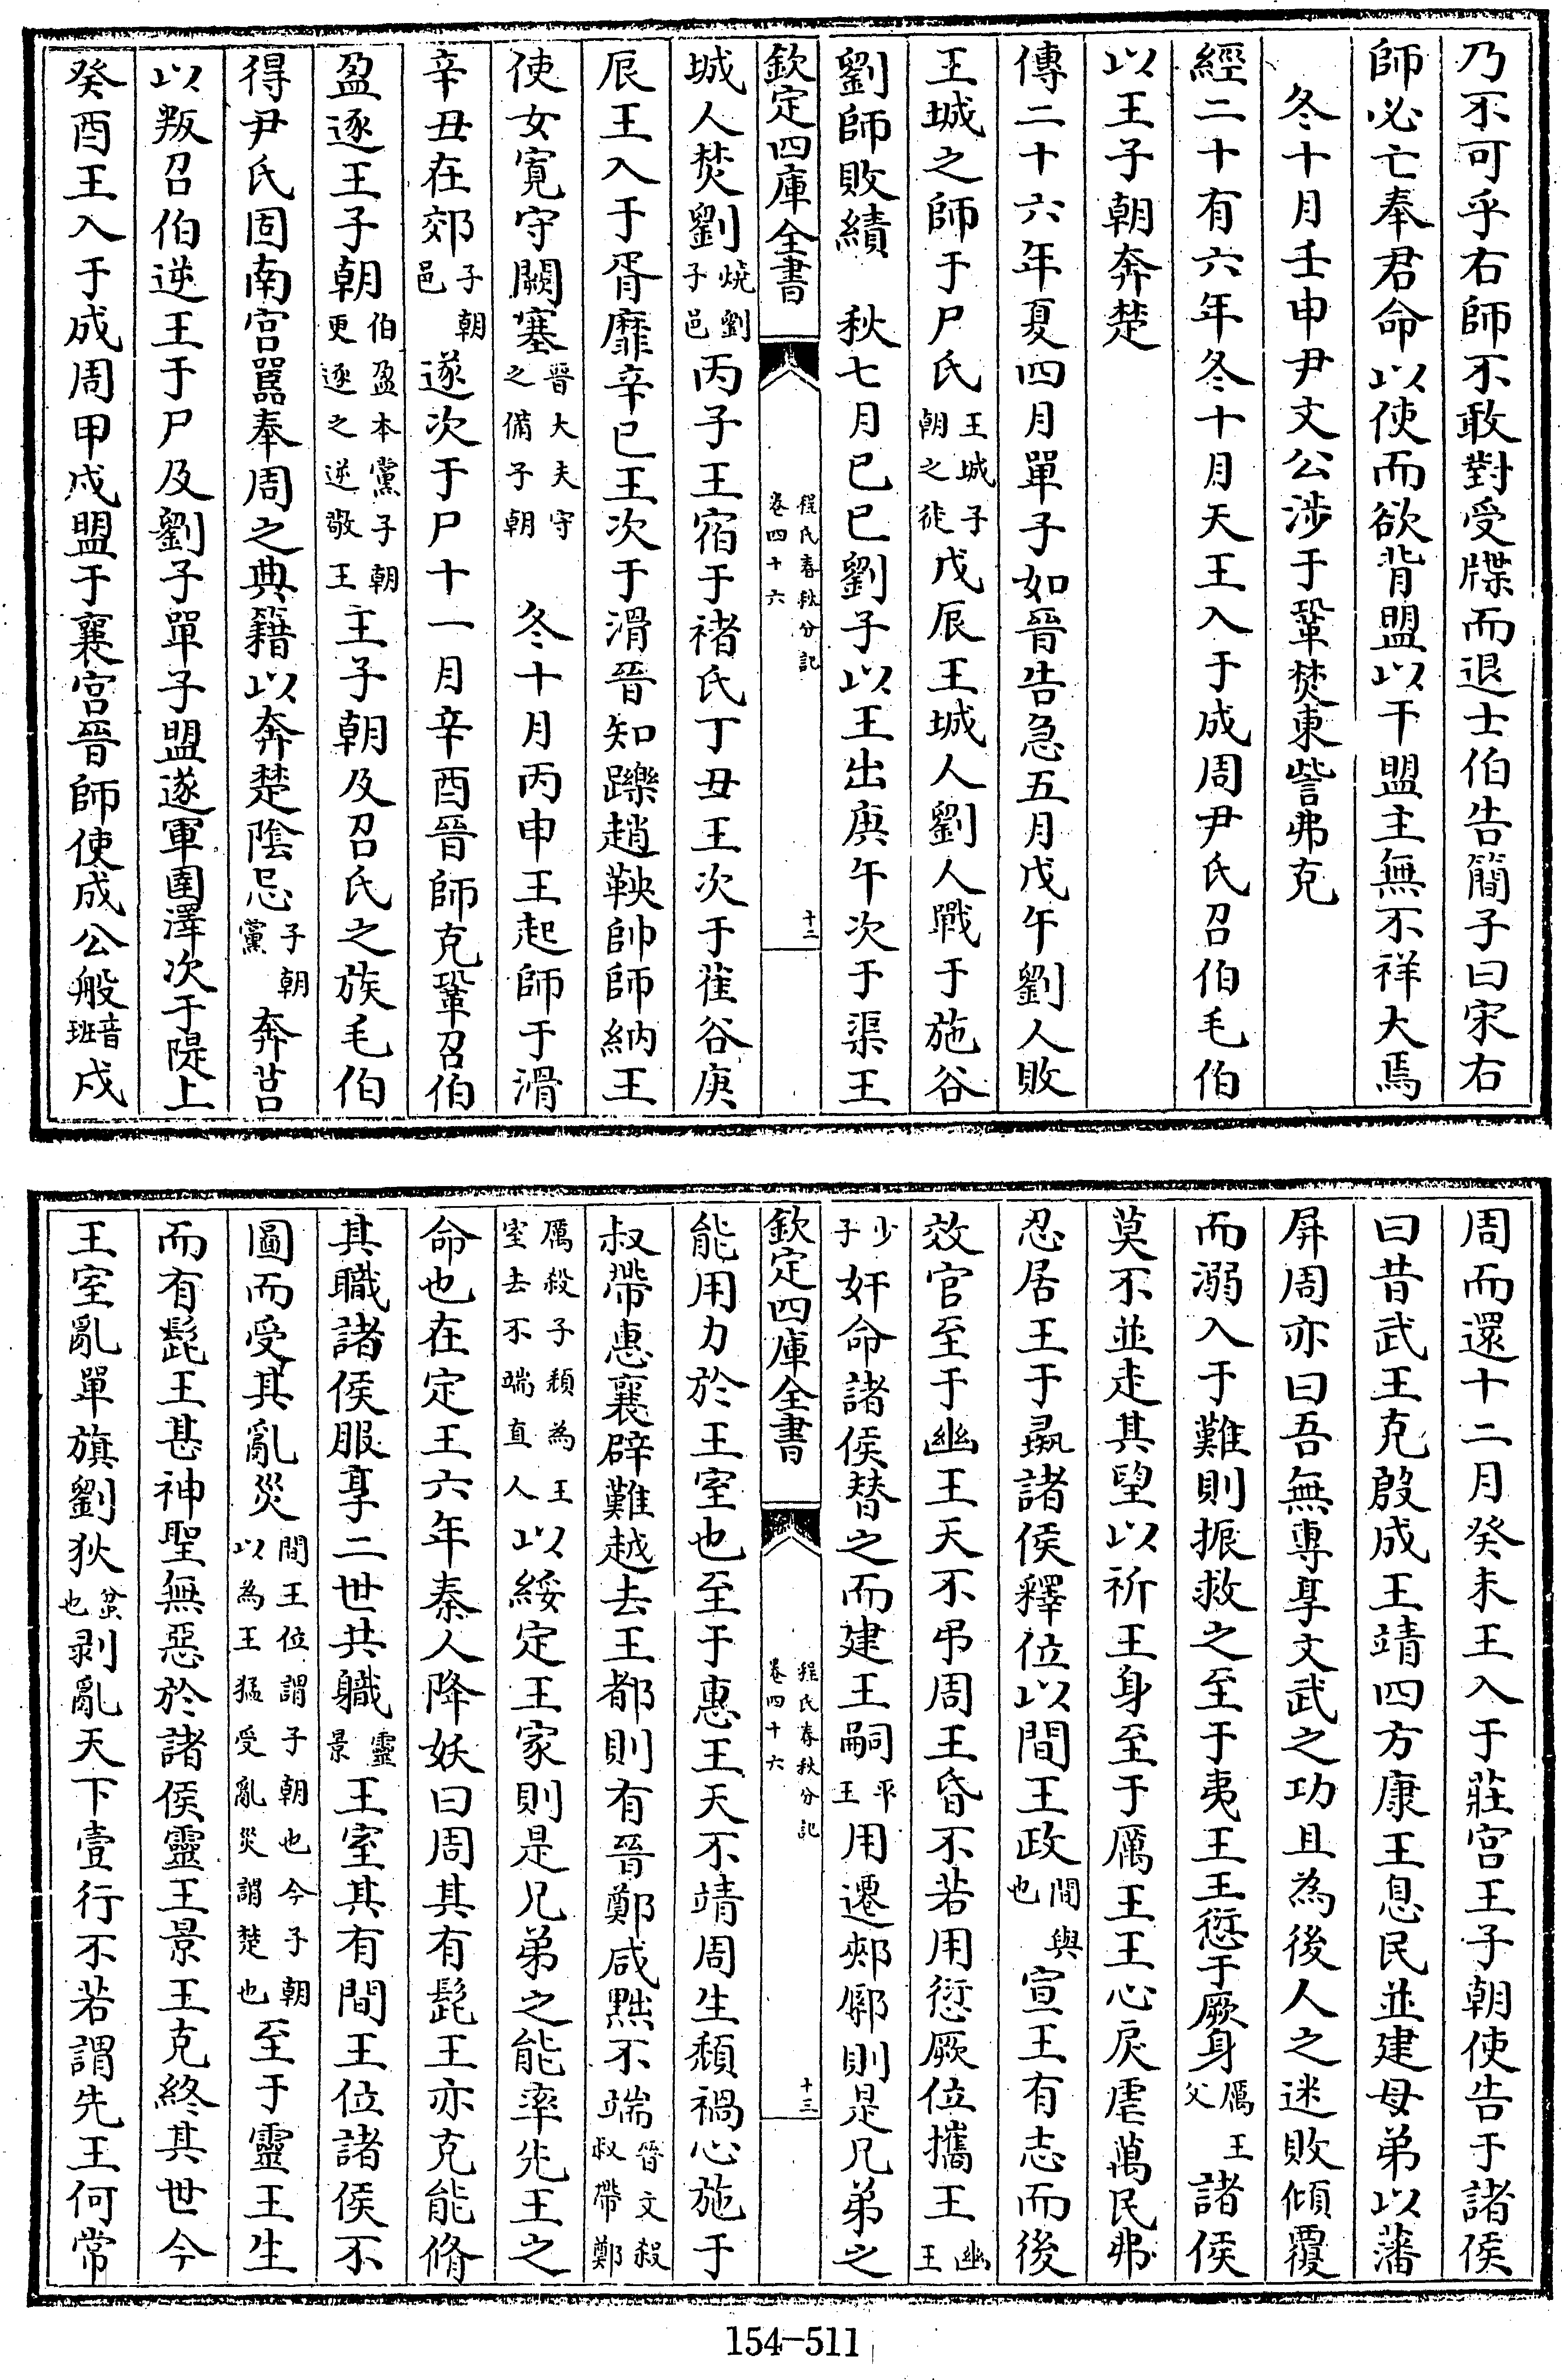 乃不可乎右師不敢對受牒而退士伯告簡子曰宋右
師必亡奉君命以使而欲背盟以干盟主無不祥大焉
冬十月壬申尹文公涉于鞏焚東訾弗克
經二十有六年冬十月天王入于成周尹氏召伯毛伯
以王子朝奔楚
傳二十六年夏四月單子如晉告急五月戊午劉人敗
王城之師于尸氏王城子朝之徒戊辰王城人劉人戰于施谷
劉師敗績　秋七月已已劉子以王出庚午次于渠王
欽定四庫全書　程氏春秋分記卷四十六　十二
城人焚劉燒劉子邑丙子王宿于褚氏丁丑王次于萑谷庚
辰王入于胥靡辛已王次于滑晉知躒趙鞅帥師納王
使女寛守闕塞晉大夫守之備子朝　冬十月丙申王起師于滑
辛丑在郊子朝邑遂次于尸十一月辛酉晉師克鞏召伯
盈逐王子朝伯盈本黨子朝更逐之逆敬王王子朝及召氏之族毛伯
得尹氏固南宫嚚奉周之典籍以奔楚陰忌子朝黨奔莒
以叛召伯逆王于尸及劉子單子盟遂軍圉澤次于隄上
癸酉王入于成周甲戌盟于襄宫晉師使成公般音班戍
周而還十二月癸未王入于莊宫王子朝使告于諸侯
曰昔武王克殷成王靖四方康王息民並建母弟以藩
屏周亦曰吾無專享文武之功且為後人之迷敗傾覆
而溺入于難則振救之至于夷王王愆于厥身厲王父諸侯
莫不並走其望以祈王身至于厲王王心戾虐萬民弗
忍居王于彘諸侯釋位以間王政間與也宣王有志而後
效官至于幽王天不弔周王昏不若用愆厥位攜王幽王
少子奸命諸侯替之而建王嗣平王用遷郟鄏則是兄弟之
欽定四庫全書　程氏春秋分記卷四十六　十三
能用力於王室也至于惠王天不靖周生頽禍心施于
叔帶惠襄辟難越去王都則有晉鄭咸黜不端晉文殺叔帶鄭
厲殺子頽為王室去不端直人以綏定王家則是兄弟之能率先王之
命也在定王六年秦人降妖曰周其有髭王亦克能脩
其職諸侯服享二世共職靈景王室其有間王位諸侯不
圖而受其亂災間王位謂子朝也今子朝以為王猛受亂災謂楚也至于靈王生
而有髭王甚神聖無惡於諸侯靈王景王克終其世今
王室亂單旗劉狄蚠也剥亂天下壹行不若謂先王何常
154-511